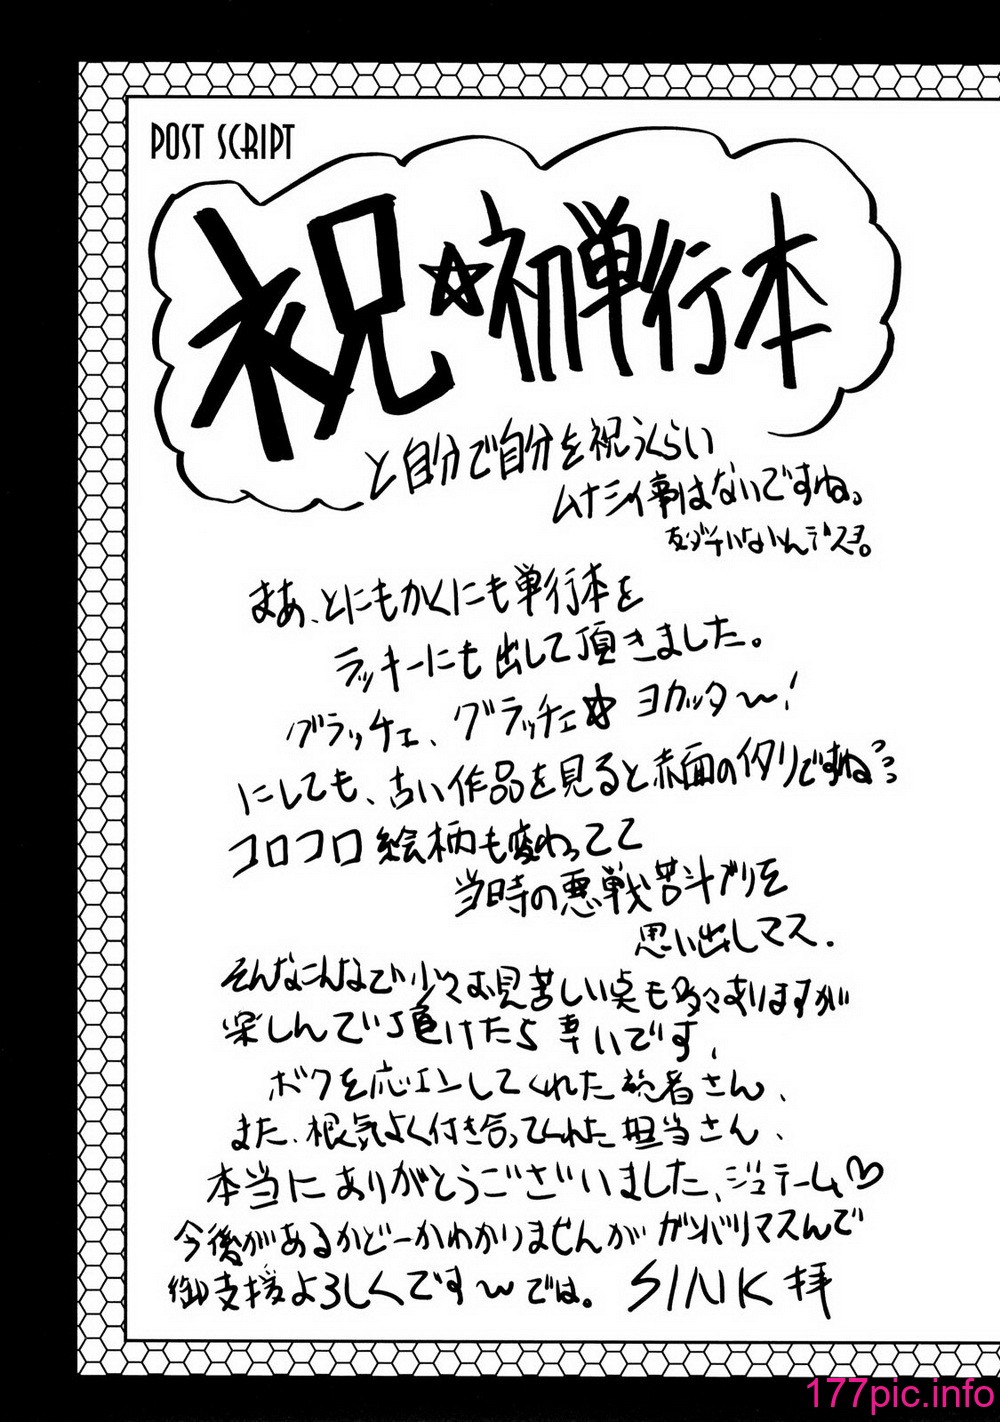 POST SCRIPT
祝☆初単行本
と自分で自分を祝うくらい
ムナシイ事はないですね。
友ダチいないんデスヨ。
まあ、とにもかくにも単行本を
ラッキーにも出して頂きました。
グラッチェ、グラッチェ☆ ヨカッタ〜!
にしても、古い作品を見ると赤面のイタリですね…
コロコロ絵柄も変わってて
当時の悪戦苦斗ブリを
思い出しマス.
そんなこんなで少々お見苦しい点も多々ありますが
楽しんで頂けたら幸いです、
ボクを応エンしてくれた読者さん、
また、根気よく付き合ってくれた担当さん、
本当にありがとうございました、ジュテーム♡
今後があるかどーかわかりませんがガンバリマスんで
御支援よろしくです〜では。 SINK 拝
177pic.info